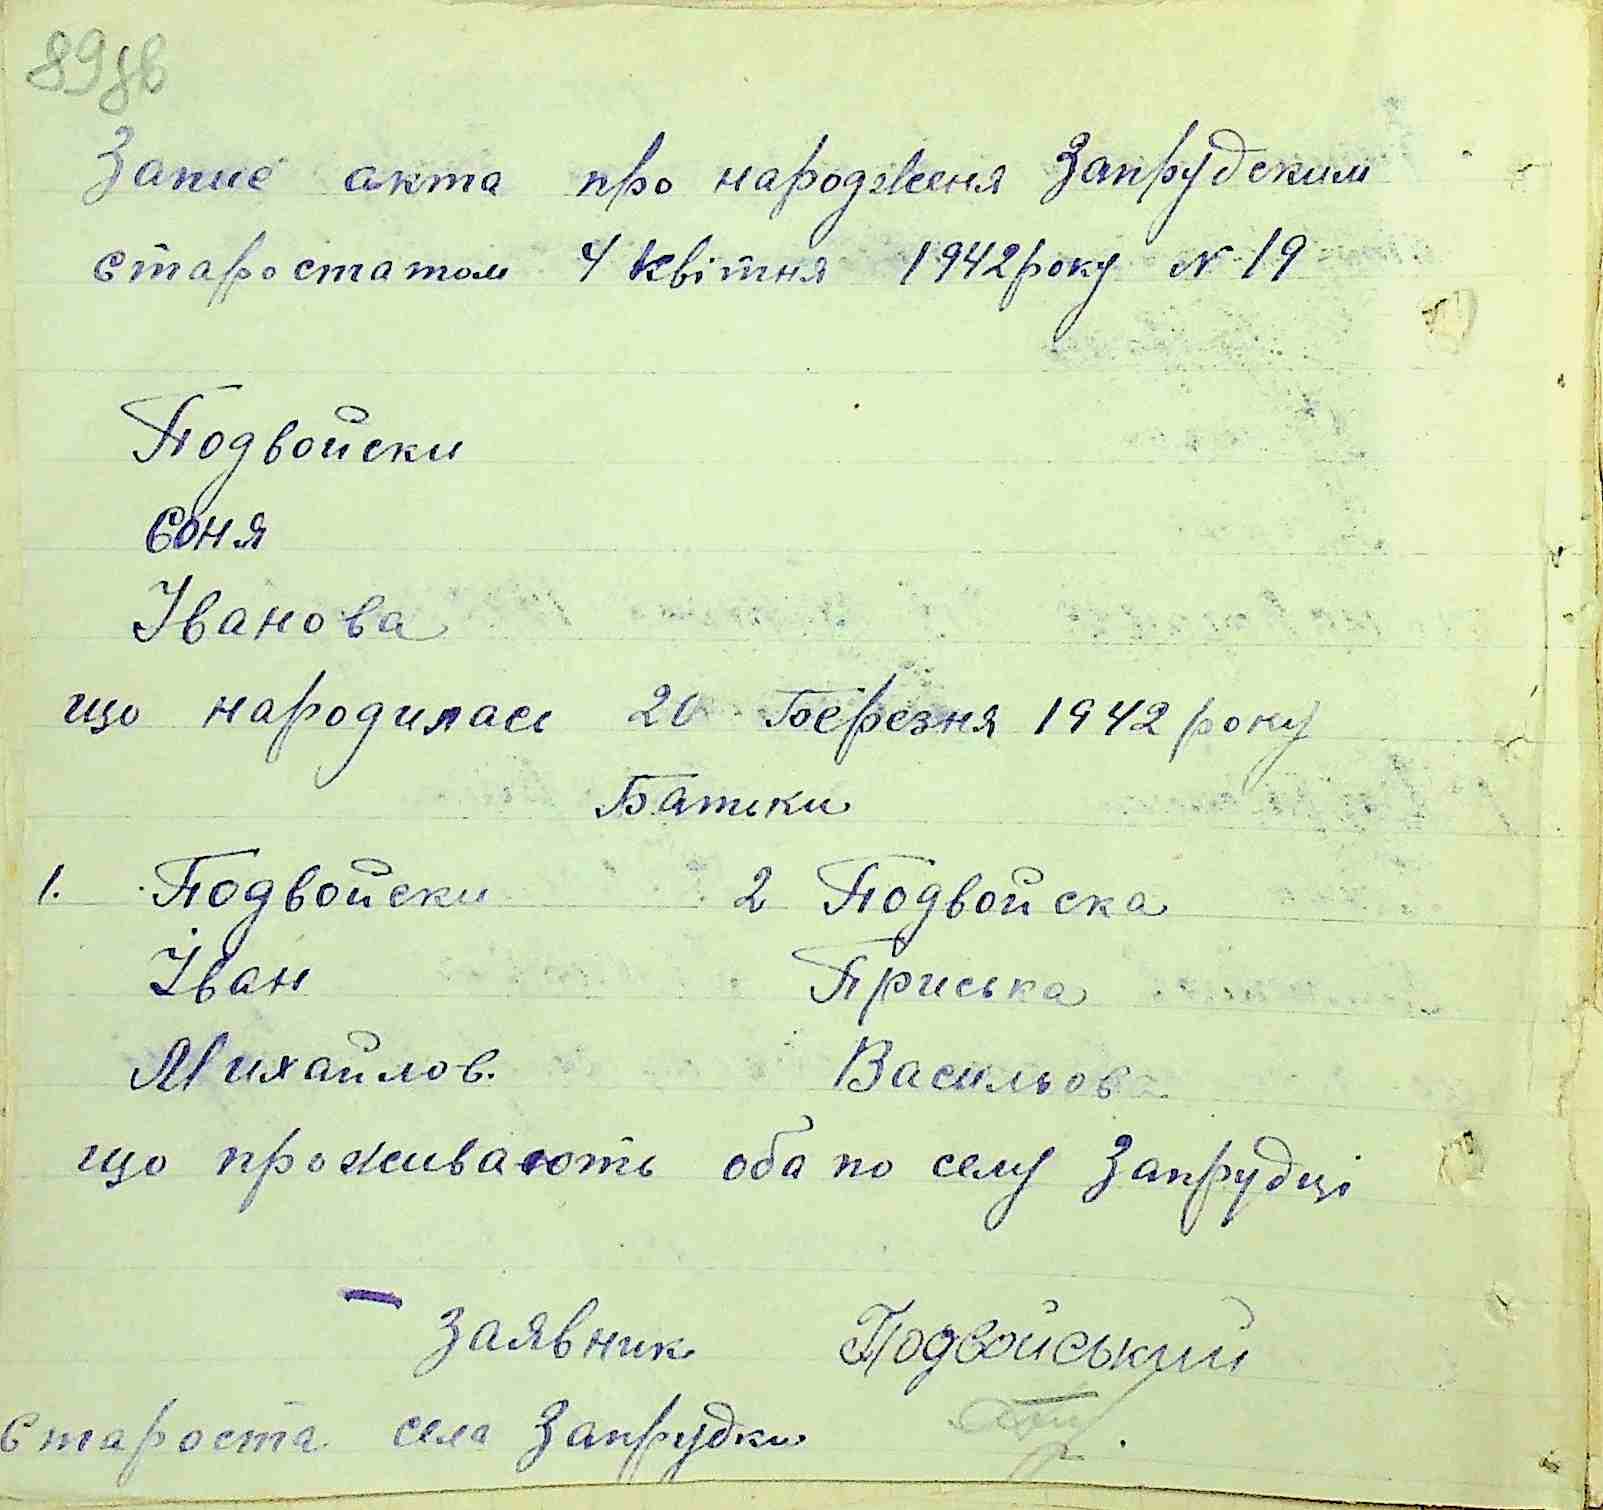 89 зв
Запис акта про народженя Запрудским
старостатом 4 квітня 1942 року № 19
Подвойски
Соня
Іванова
що народилась 20 Березня 1942 року
Батьки
1. Подвойски 2 Подвойска
Іван Приська
Михайлов. Васильова
що проживають оба по селу Запрудці
Заявник Подвойський
Староста села Запрудки